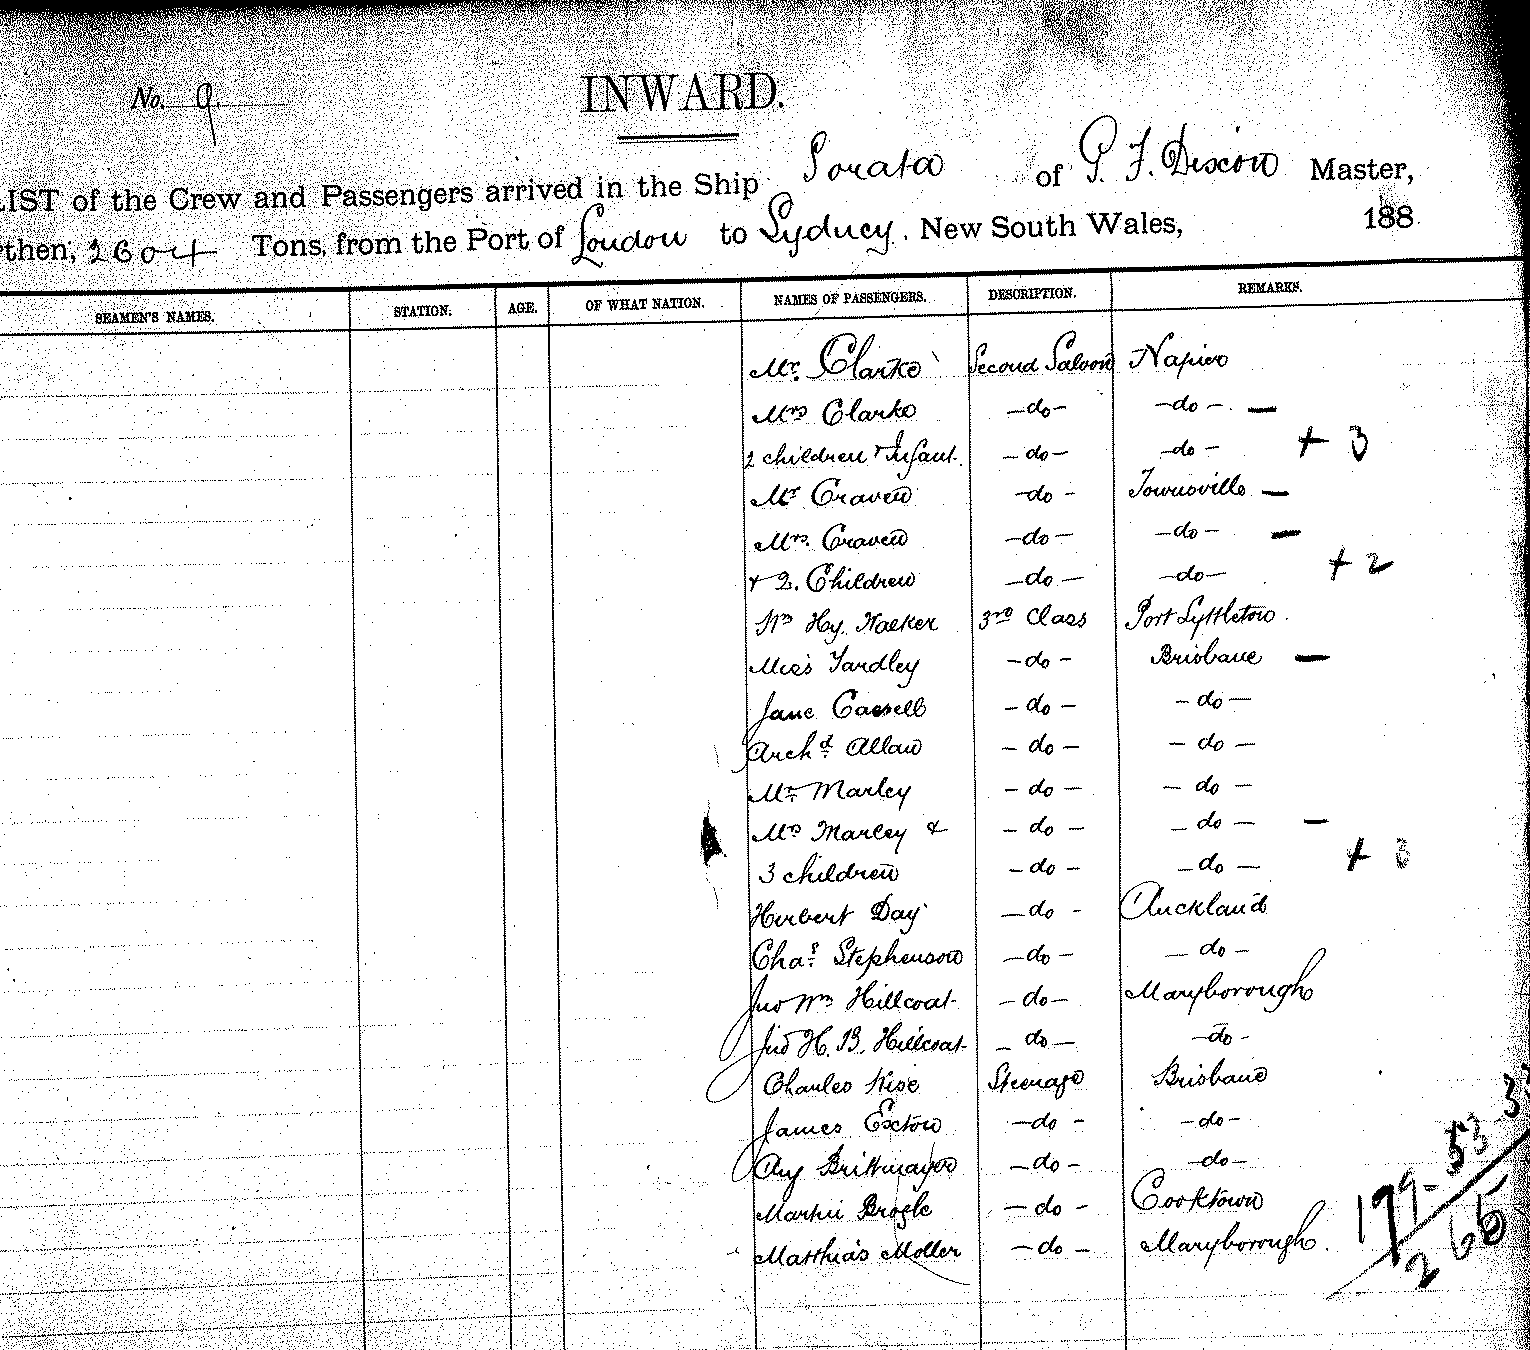 No. 9.
INWARD.
LIST of the Crew and Passengers arrived in the Ship Sorata of G. F. Dixon Master,
rthen, 2604 Tons, from the Port of London to Sydney. New South Wales, 188
SEAMEN'S NAMES. STATION. AGE. OF WHAT NATION. NAMES OF PASSENGERS. DESCRIPTION. REMARKS.
Mr. Clarke Second Saloon Napier
Mrs Clarke - do - - do - -
2 children + Infant. - do - - do - + 3
Mr Craven - do - Townsville -
Mrs. Craven - do - - do - -
+ 2. Children - do - - do - + 2
Wm Hy. Hacker 3rd Class Port Lyttleton.
Miss Yardley - do - Brisbane -
Jane Cassell - do - - do -
Archd. Allan - do - - do -
Mr. Marley - do - - do -
Mrs Marley & - do - - do - -
3 children - do - - do - + 3
Herbert Day - do - Auckland
Chas. Stephenson - do - - do -
Jno Wm Hillcoat - do - Maryborough
Jno H. B. Hillcoat - do - - do -
Charles Steerage Brisbane
James Exton - do - - do -
Aug Brittmayer - do - - do -
Martin Brogle - do - Cooktown
Matthias Moller - do - Maryborough.
199 - 53
2 66